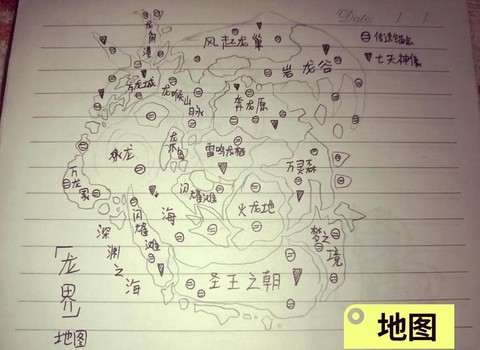 Date: / /
传送锚点
七天神像
龙角港
风起龙巢
岩龙谷
万龙城
龙喉山
脉
奔龙原
水龙
龙木岛
雷鸣龙栖
万灵森
万龙冢
闪耀滩
火龙地
闪耀滩
海
梦之境
深渊之海
圣王之朝
「龙界」
地图
地图